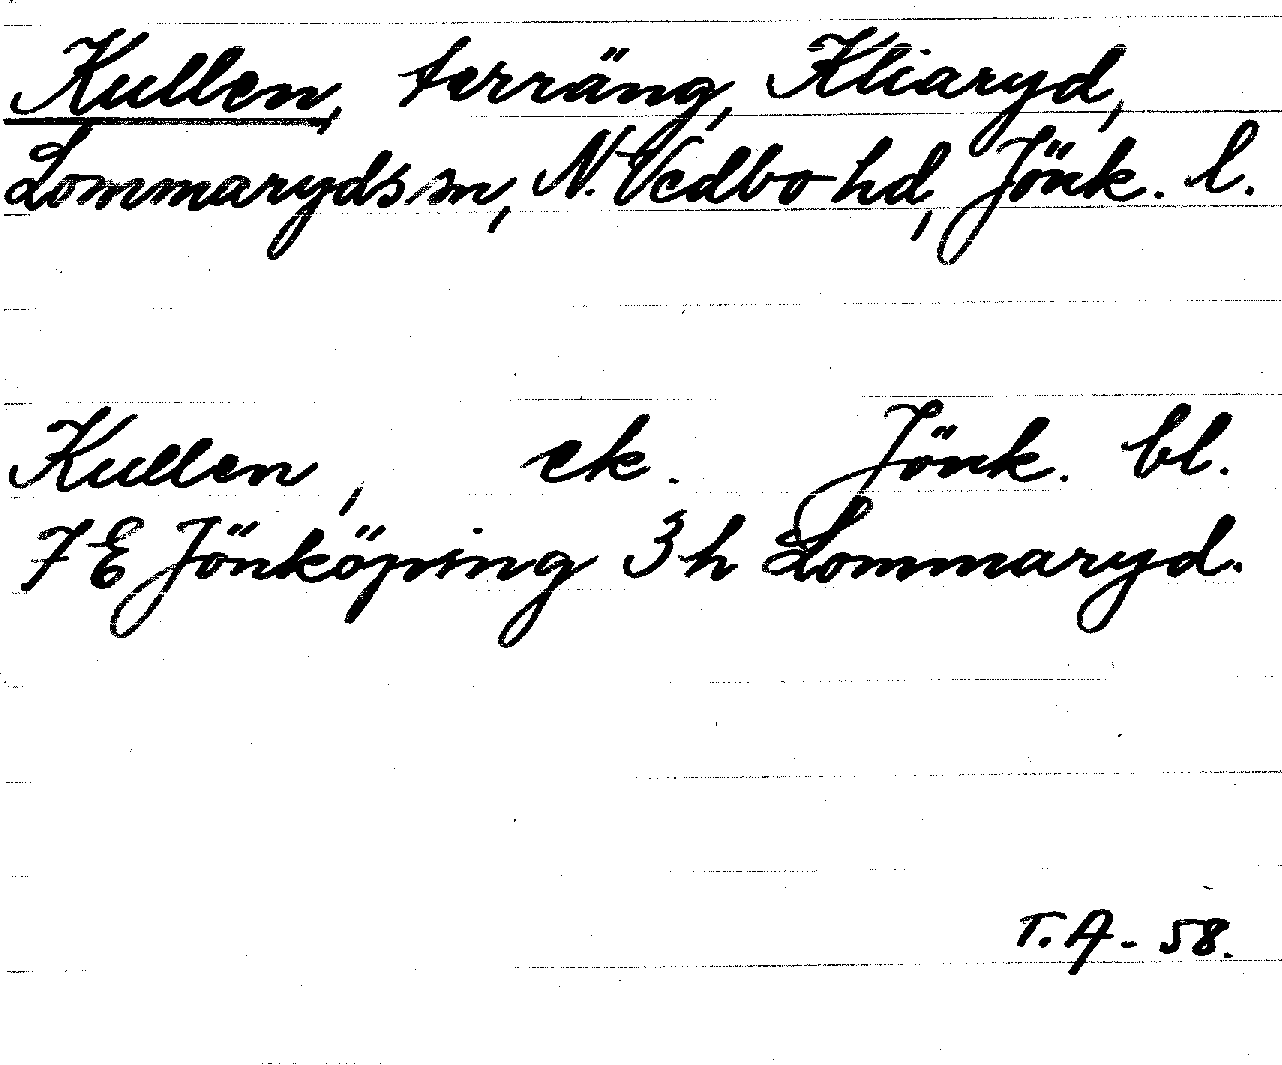 Kullen, terräng, Kliaryd,
Lommaryds sn, N. Vedbo hd, Jönk. l.
Kullen, ek. Jönk. bl.
7E Jönköping 3h Lommaryd.
T.A - 58.